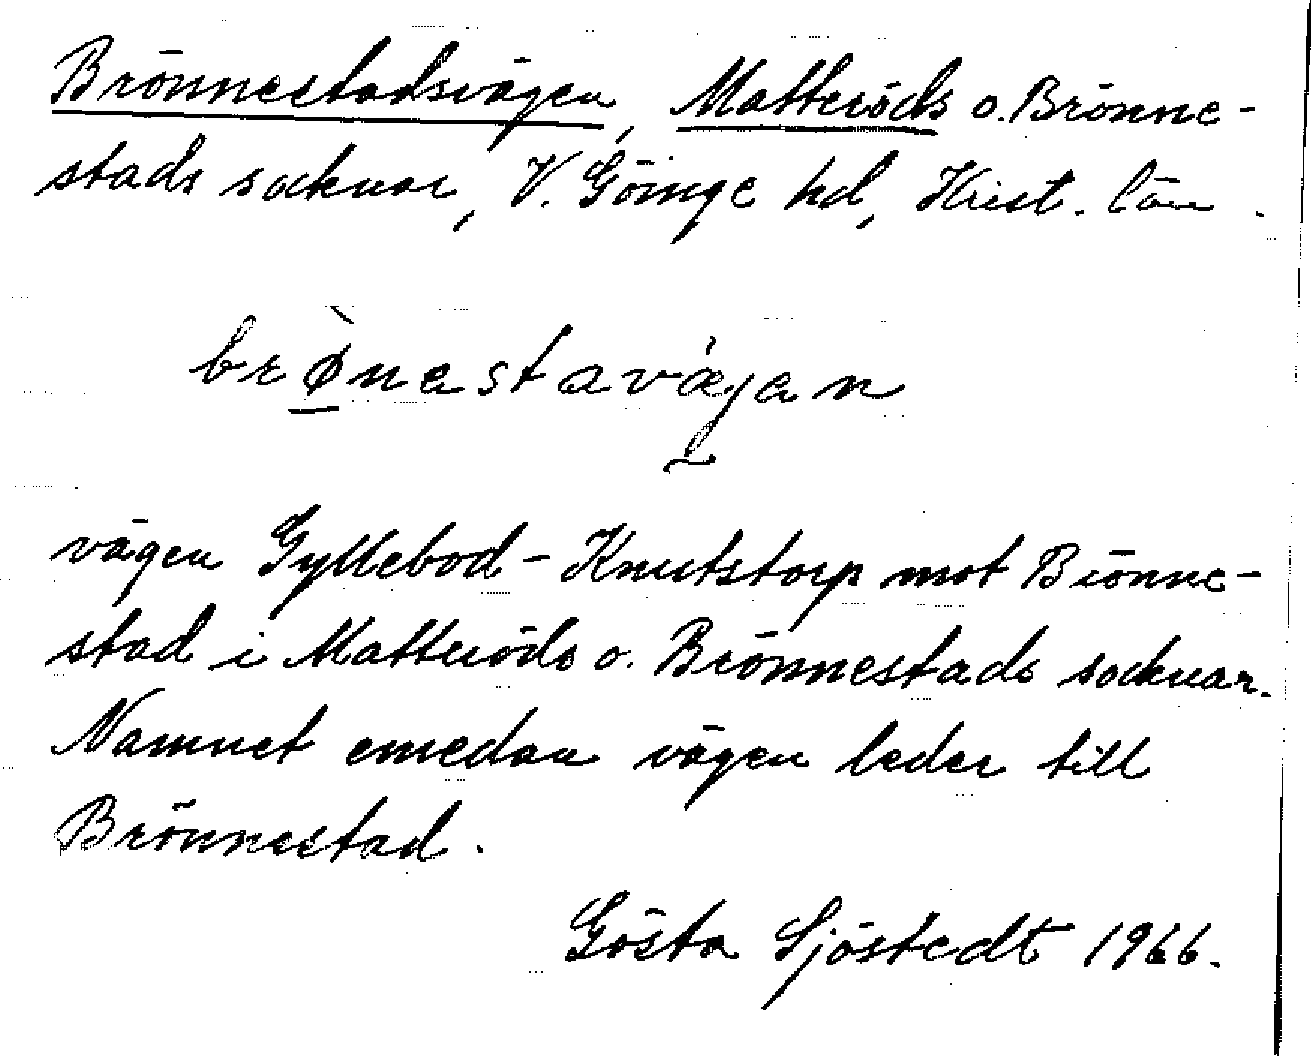 Brönnestadsvägen, Matteröds o. Brönne-
stads socknar, V. Göinge hd, Krist. län.
brø̀nestavǽjen
vägen Gyllebod - Knutstorp mot Brönne-
stad i Matteröds o. Brönnestads socknar.
Namnet emedan vägen leder till
Brönnestad.
Gösta Sjöstedt 1966.